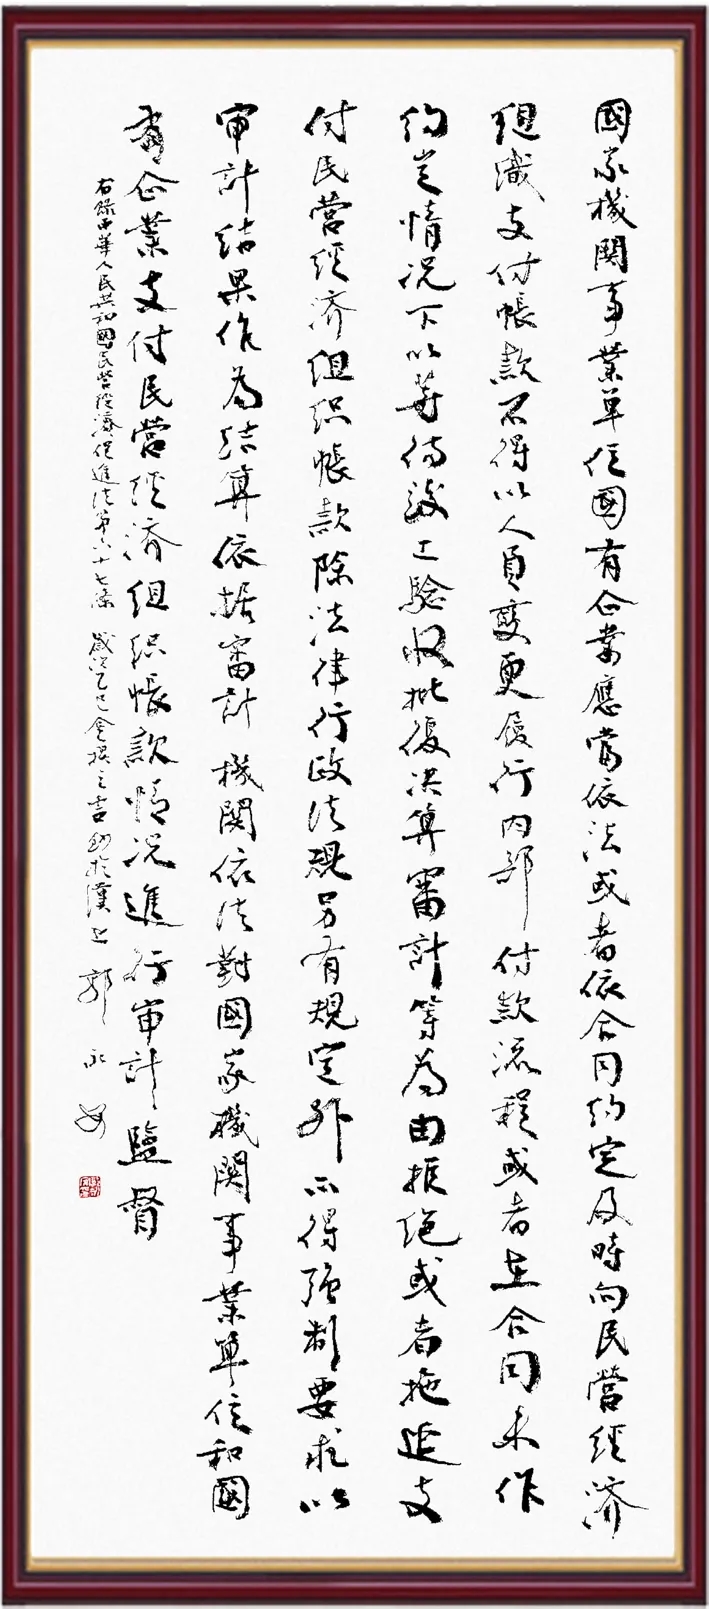 國家機關事業單位國有企業應當依法或者依合同約定及時向民營經濟
組織支付帳款不得以人員變更履行內部付款流程或者在合同未作
約定情况下以等待竣工驗收批復决算審計等為由拒絕或者拖延支
付民營經濟組织帳款除法律行政法規另有規定外不得强制要求以
审計结果作為结算依据審計機関依法對國家機関事業單位和國
有企業支付民營经济组织帳款情况進行审計監督
右録中華人民共和國民營經濟促進法第六十七條 歲次乙巳 之吉 於漢上 郭永安